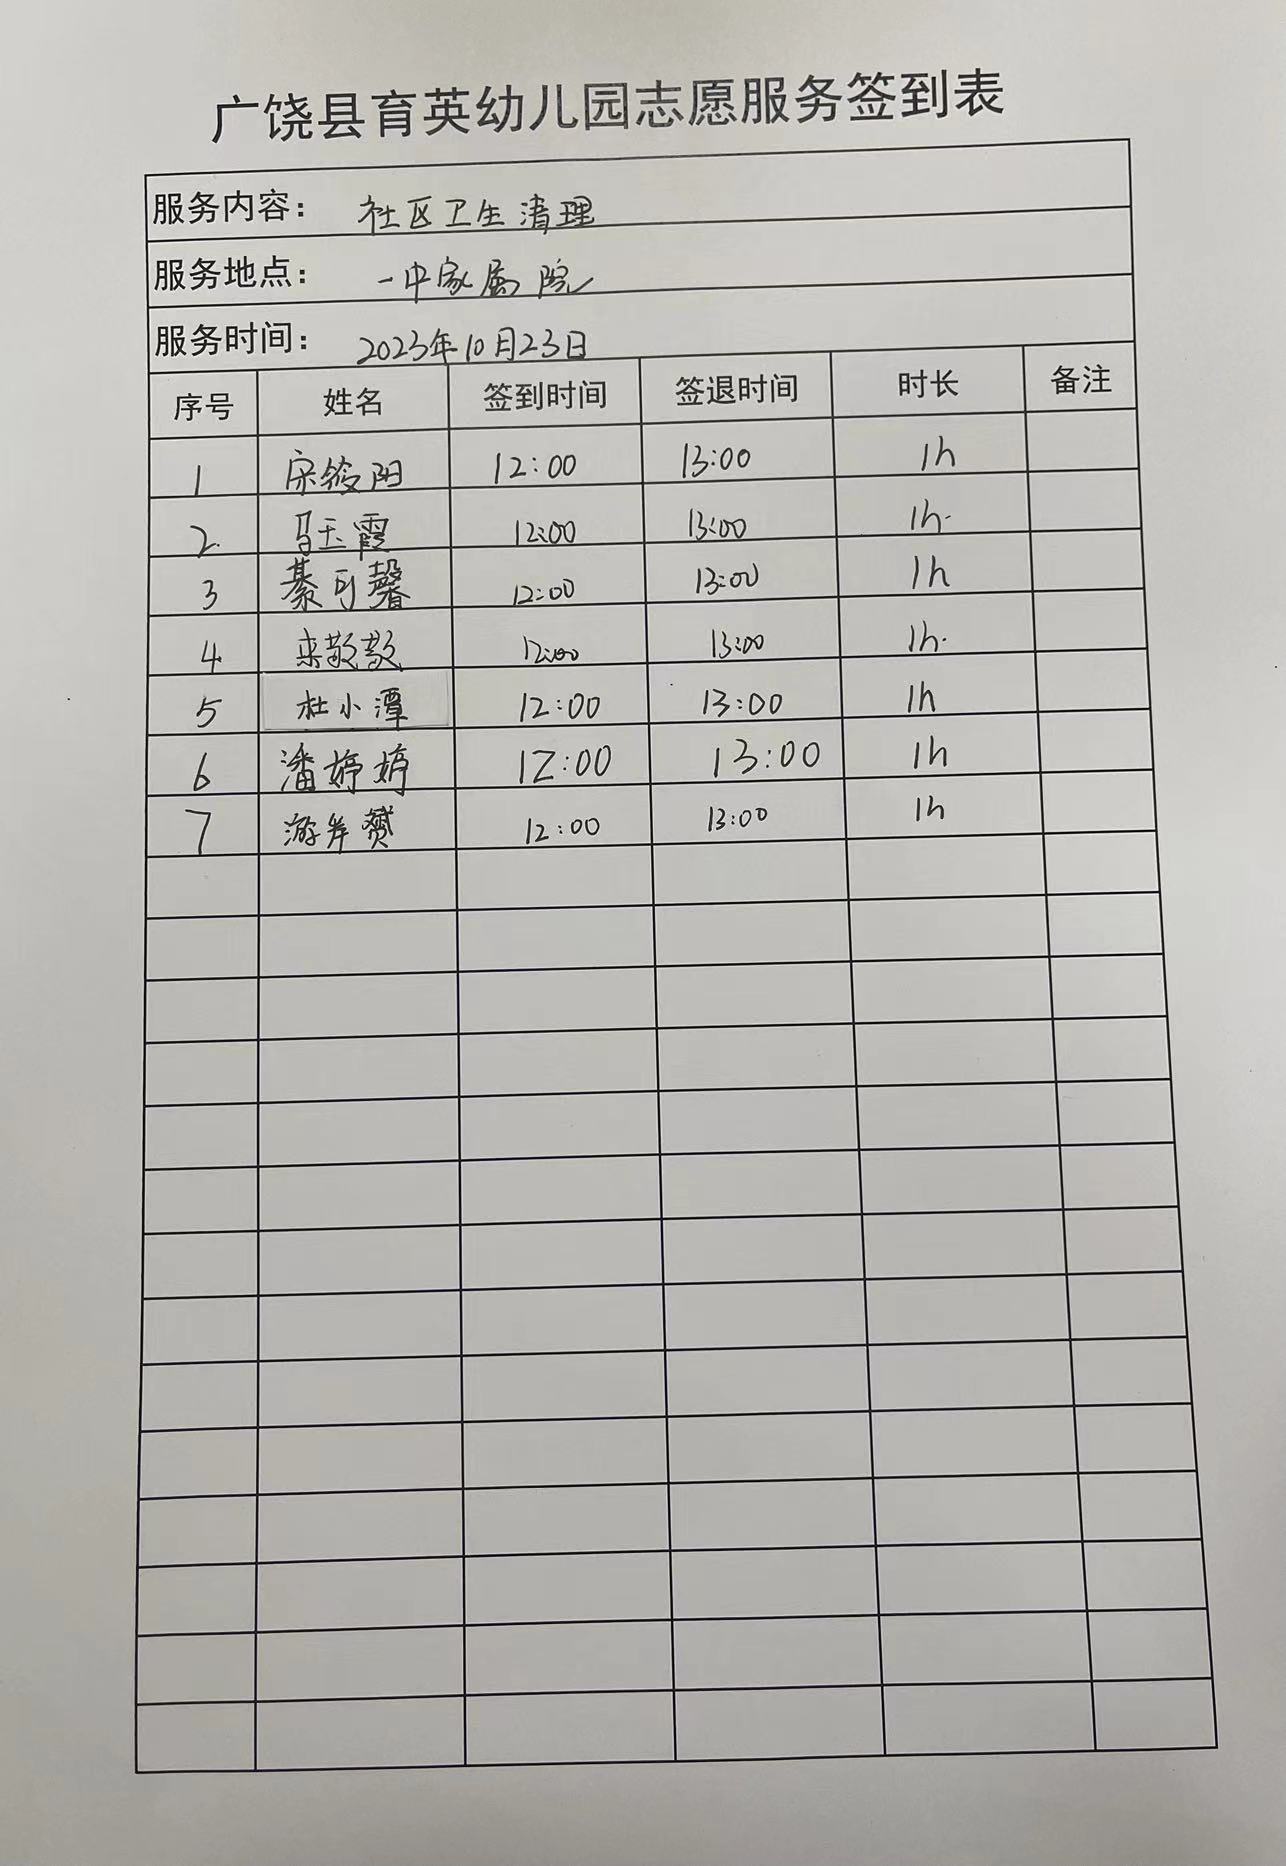 广饶县育英幼儿园志愿服务签到表
服务内容: 社区卫生清理
服务地点: 一中家属院
服务时间: 2023年10月23日
序号 姓名 签到时间 签退时间 时长 备注
1 宋 阳 12:00 13:00 1h
2 马玉霞 12:00 13:00 1h
3 綦可馨 12:00 13:00 1h
4 来敬敬 12:00 13:00 1h
5 杜小潭 12:00 13:00 1h
6 潘婷婷 12:00 13:00 1h
7 12:00 13:00 1h